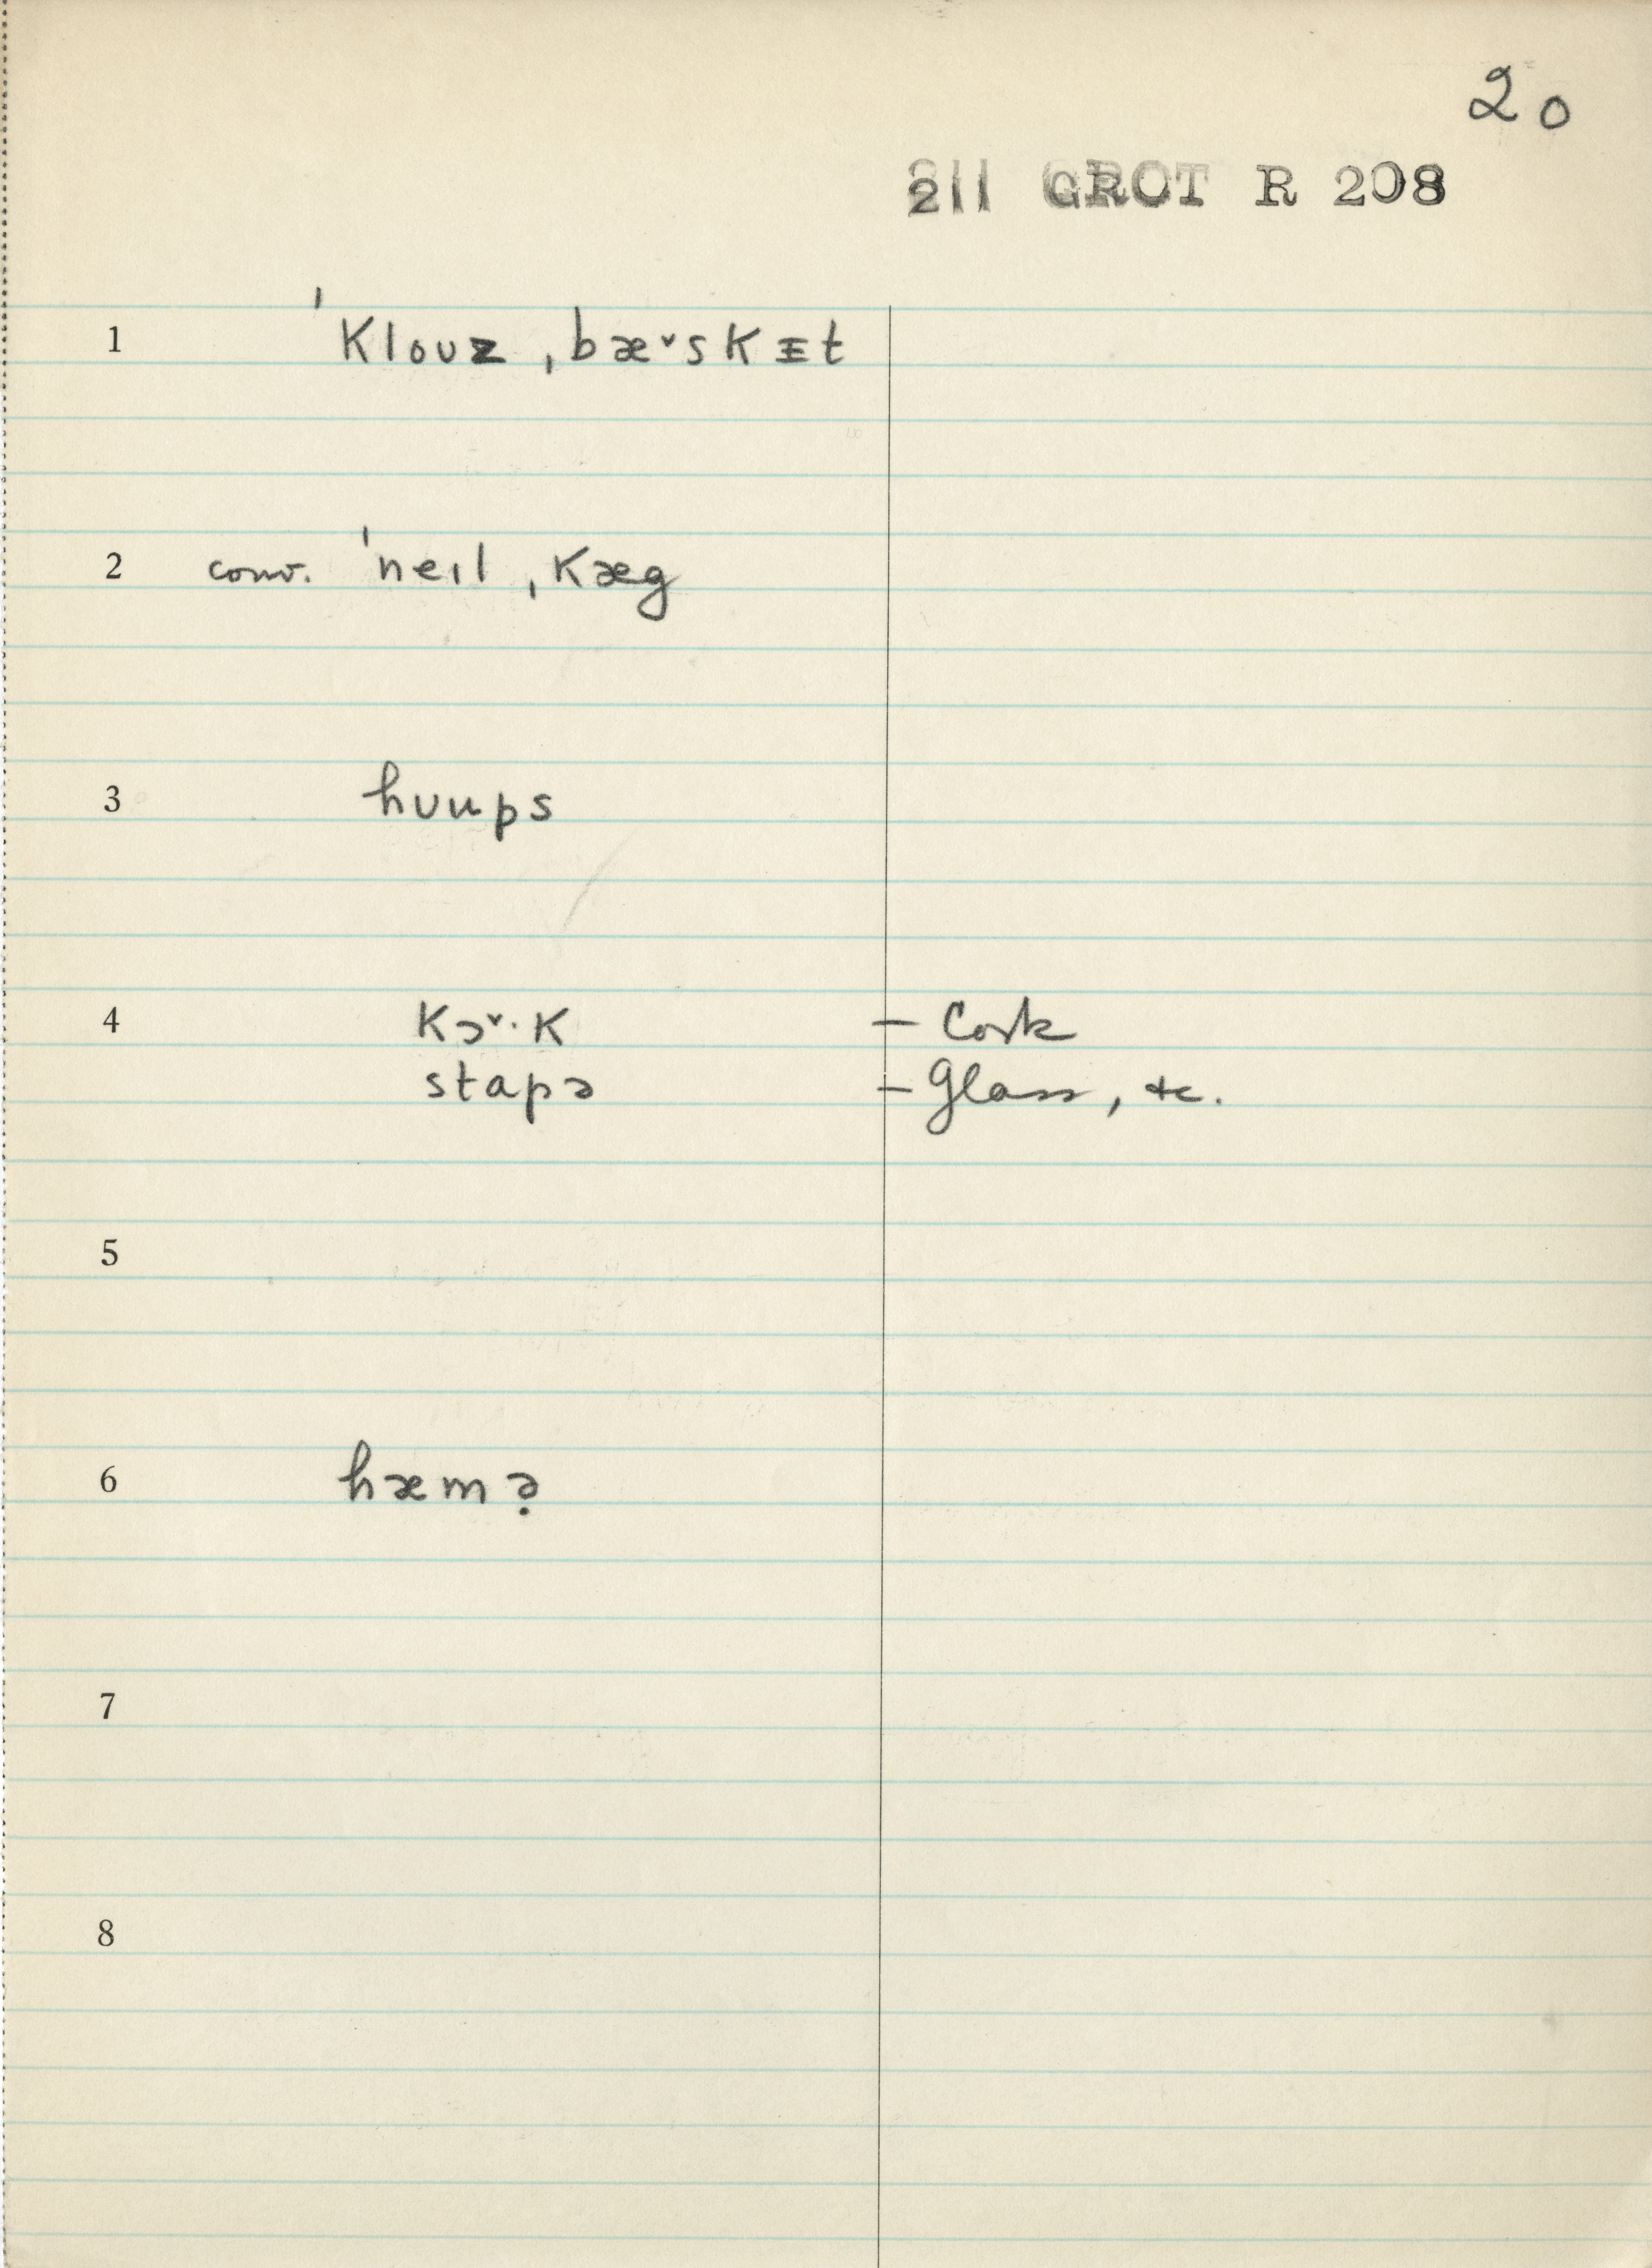 20
211 GROT R 208
1 ˈklouz ˌbæ˅skᵻt
2 conv. ˈneɪl ˌkæg
3 hʊups
4 kɔ˅·k – Cork
stapə – Glass, &c.
5
6 hæmə̣
7
8